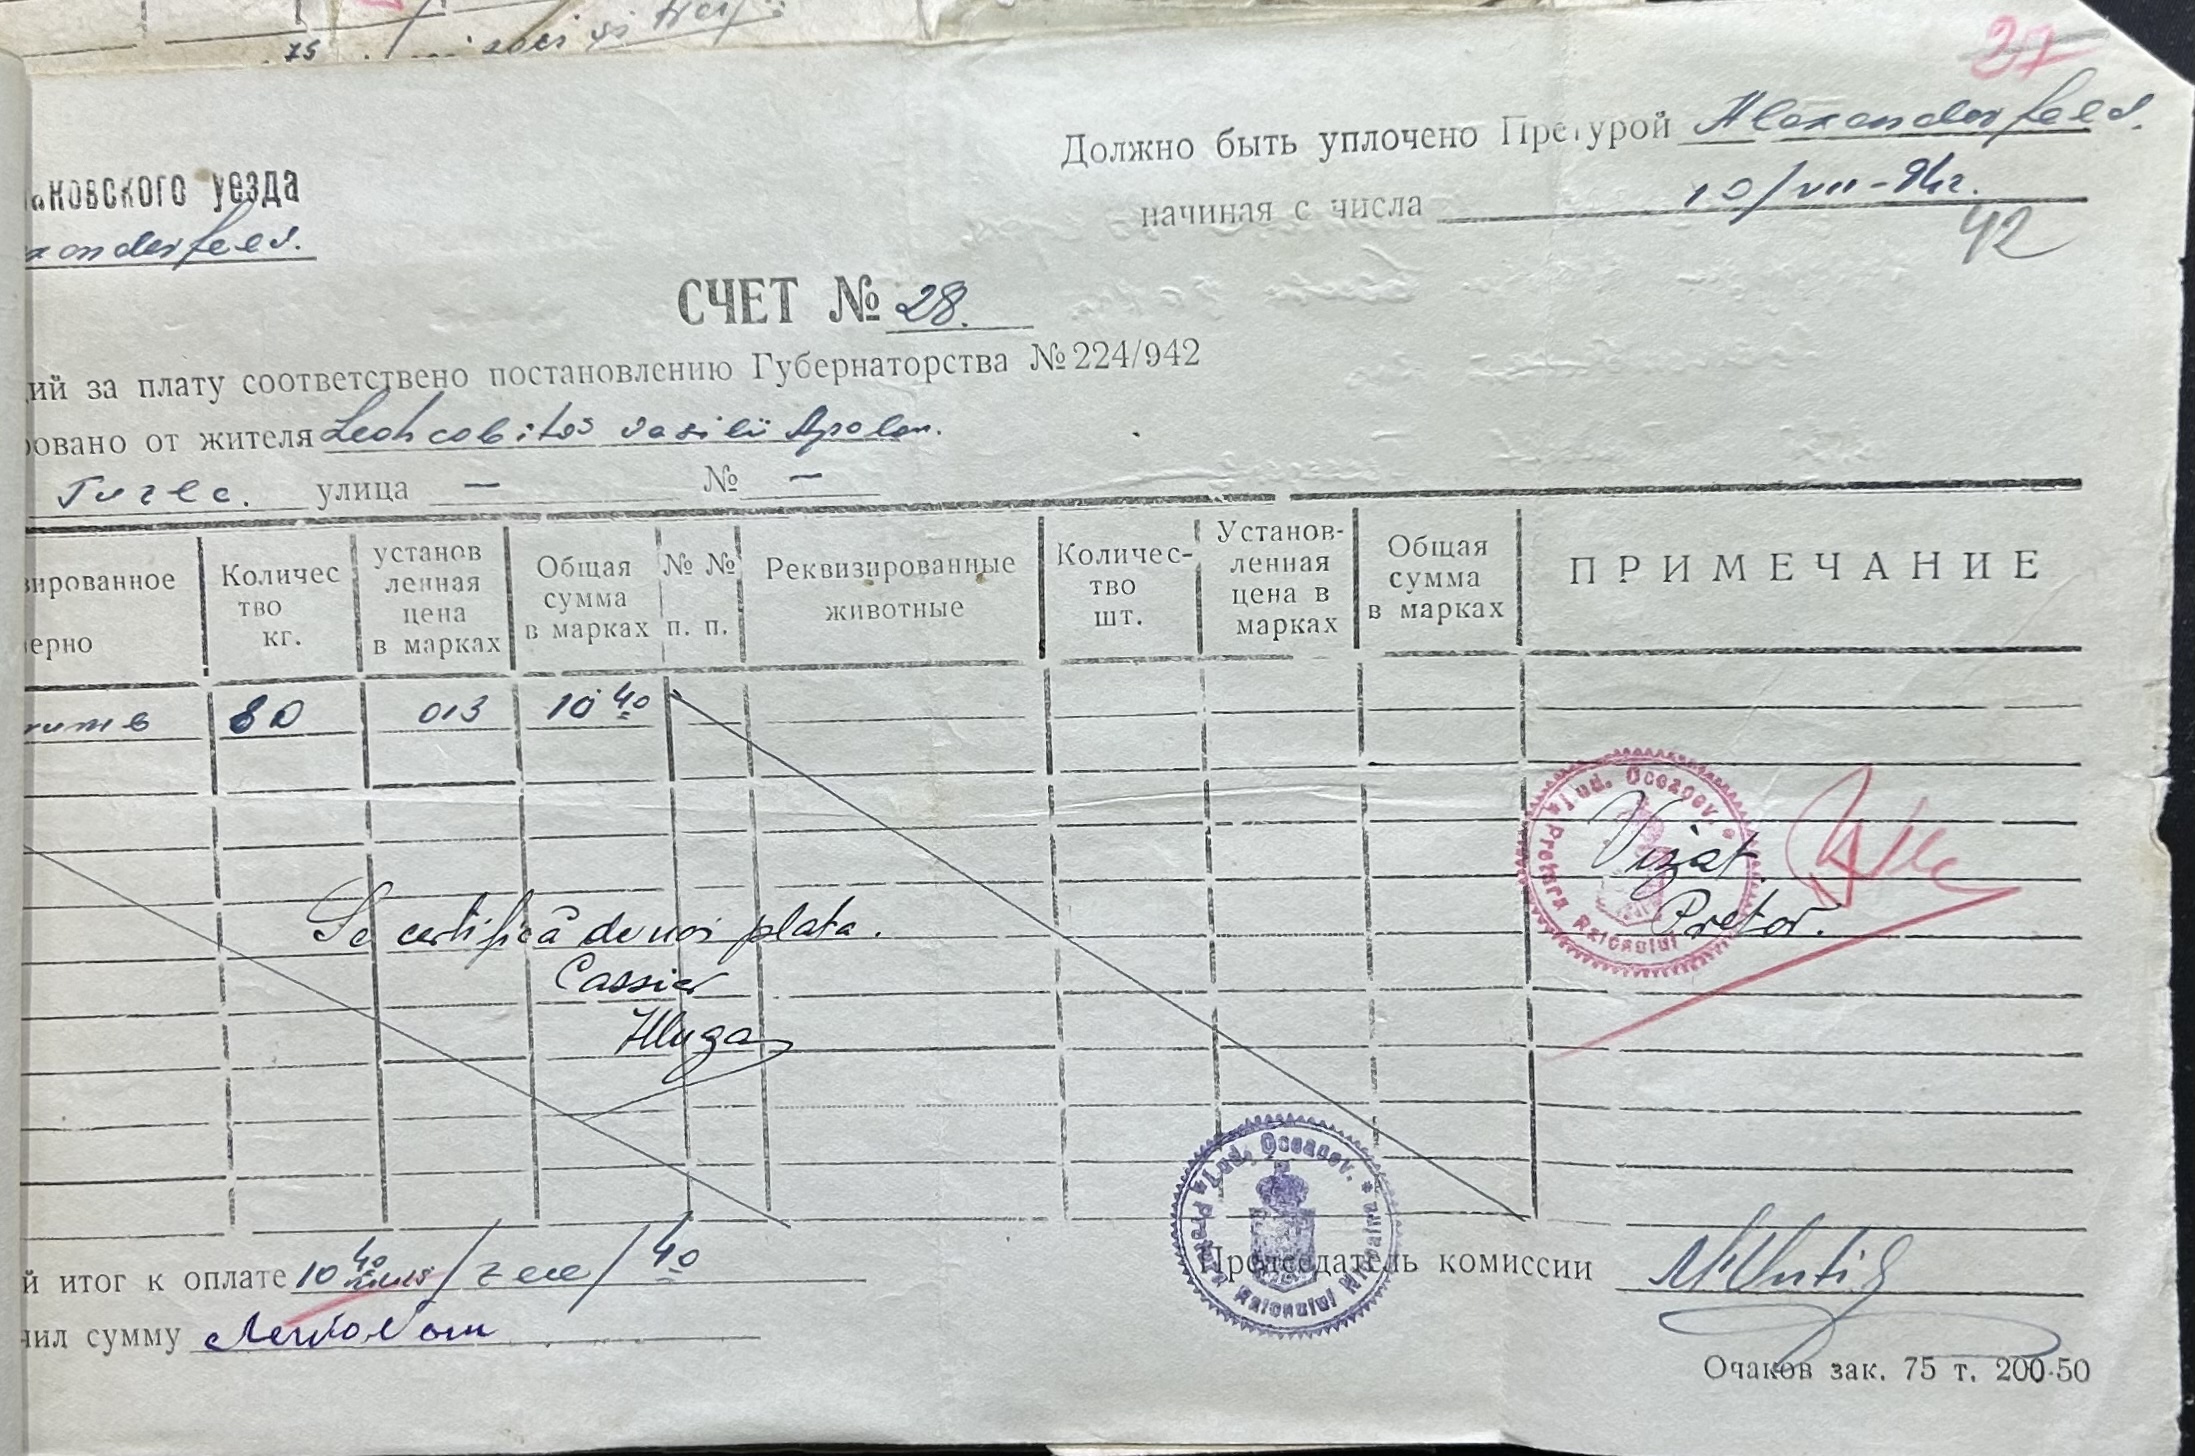 75
37
Должно быть уплочено Претурой Alexanderfeld.
начиная с числа 10/VII-942.
42
аковского уезда
xanderfeld.
СЧЕТ № 28.
ий за плату соответствено постановлению Губернаторства № 224/942
ровано от жителя vasilii Apolon.
улица — № —
зированное
ерно
Количес
тво
кг.
установ
ленная
цена
в марках
Общая
сумма
в марках
№ №
п. п.
Реквизированные
животные
Количес-
тво
шт.
Установ-
ленная
цена в
марках
Общая
сумма
в марках
ПРИМЕЧАНИЕ
80 013 10 40
Jud. Oceacov. * Pretura Raionului
Vizat.
Pretor.
Se certifică de noi plata.
Cassier
Jud. Oceacov. * Pretura Raionului
й итог к оплате 10 40 /zece/ 40
чил сумму
Председатель комиссии
Очаков зак. 75 т. 200-50